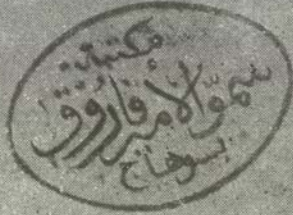 مكتبة
سمو الأمير فاروق
بسوهاج